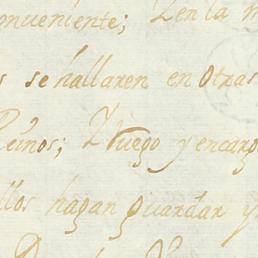 nveniente; Y en la
se hallaren en otras
Reinos; Y Ruego y encarg
llos hagan guardar y